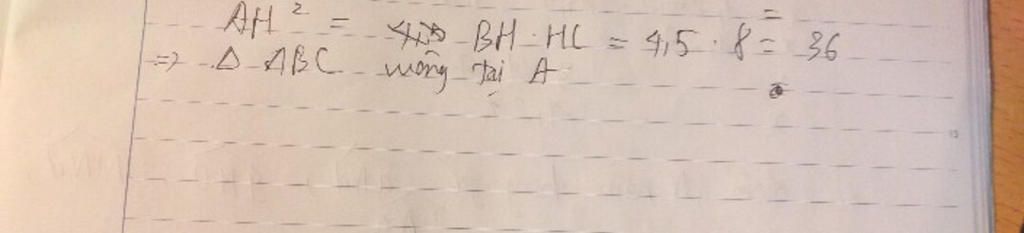 AH² = BH · HC = 4,5 · 8 = 36
=> Δ ABC vuông tại A